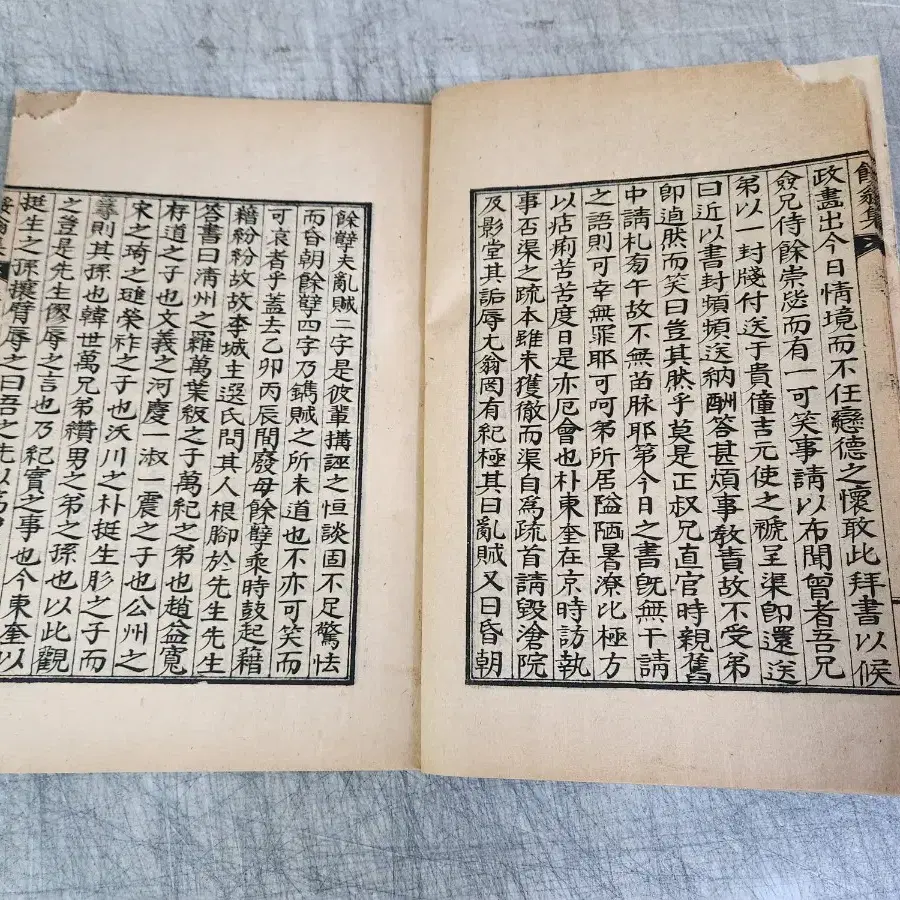 政盡出今日情境而不任戀德之懷敢此拜書以候
僉兄侍餘崇
而有一可笑事請以布聞曾者吾兄
弟以一封牋付送于貴僮吉元使之
呈渠卽還送
曰近以書封頻頻送納酬答甚煩事敎責故不受弟
卽逌然而笑曰豈其然乎莫是正叔兄直官時親舊
中請札旁午故不無苗脉耶第今日之書旣無干請
之語則可幸無罪耶可呵弟所居隘陋暑潦比極方
以痁痢苦苦度日是亦厄會也朴東奎在京時訪執
事否渠之疏本雖未獲徹而渠自爲疏首請毁滄院
及影堂其詬辱尤翁罔有紀極其曰亂賊又曰昏朝
餘孼夫亂賊二字是彼輩搆誣之恒談固不足驚怯
而昏朝餘孼四字乃鐫賊之所未道也不亦可笑而
可哀者乎盖去乙卯丙辰間廢母餘孼乘時鼓起藉
藉紛紛故故李城主選氏問其人根腳於先生先生
答書曰淸州之羅萬葉紱之子萬紀之弟也趙益寬
存道之子也文義之河慶一淑一震之子也公州之
宋之琦之
榮祚之子也沃川之朴挺生肜之子而
則其孫也韓世萬兄弟纘男之弟之孫也以此觀
之豈是先生僇辱之言也乃紀實之事也今東奎以
挺生之孫攘臂辱之曰吾之先以